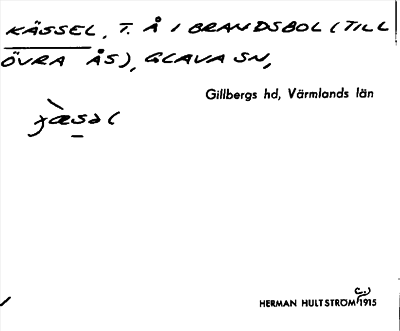 KÄSSEL, T. Å I BRANDSBOL (TILL
ÖVRA ÅS), GLAVA SN,
Gillbergs hd, Värmlands län
c.)
HERMAN HULTSTRÖM 1915